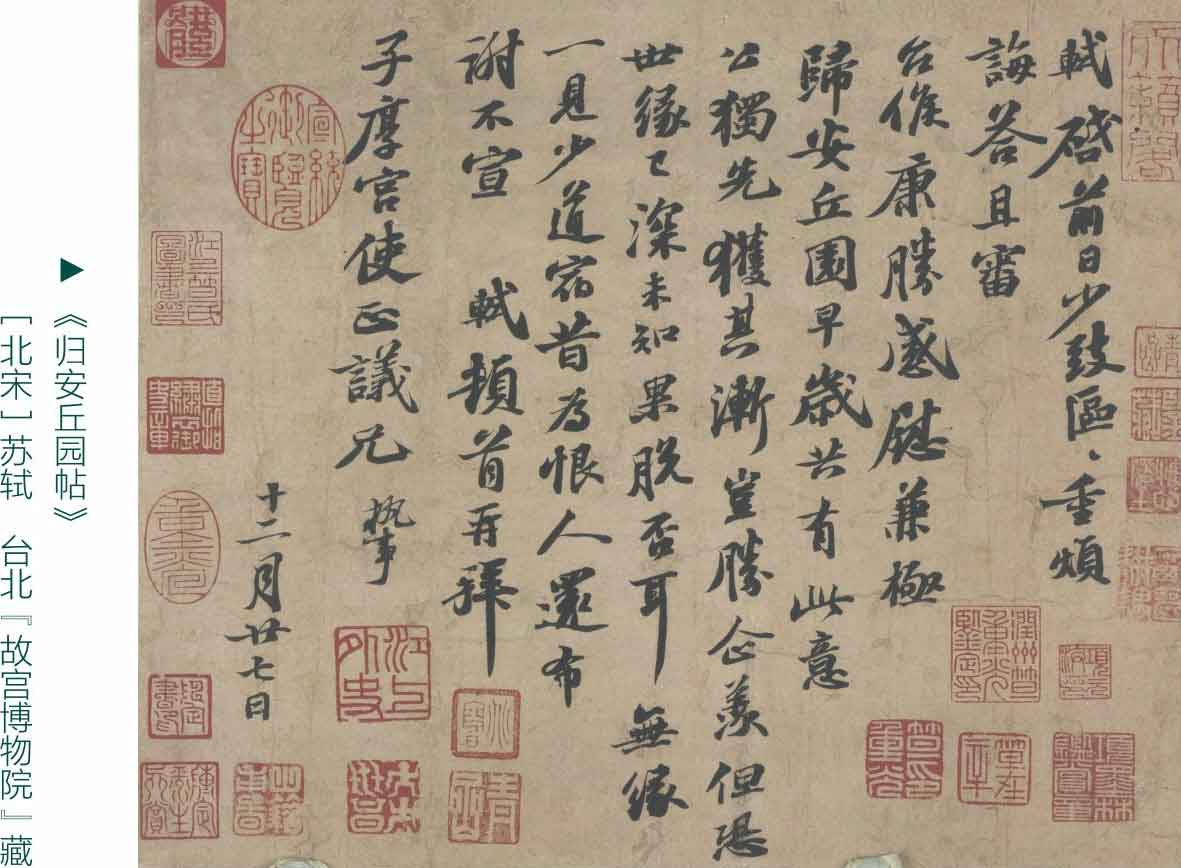 軾啓前日少致區〻重煩
誨荅且審
台候康勝感慰兼極
歸安丘園早歲共有此意
公獨先獲其漸豈勝企羨但恐
世緣已深未知果脫否耳無緣
一見少道宿昔為恨人還布
謝不宣 軾頓首再拜
子厚宮使正議兄 執事
十二月廿七日
宣統御覽之寶
▶《归安丘园帖》
[北宋]苏轼 台北『故宫博物院』藏